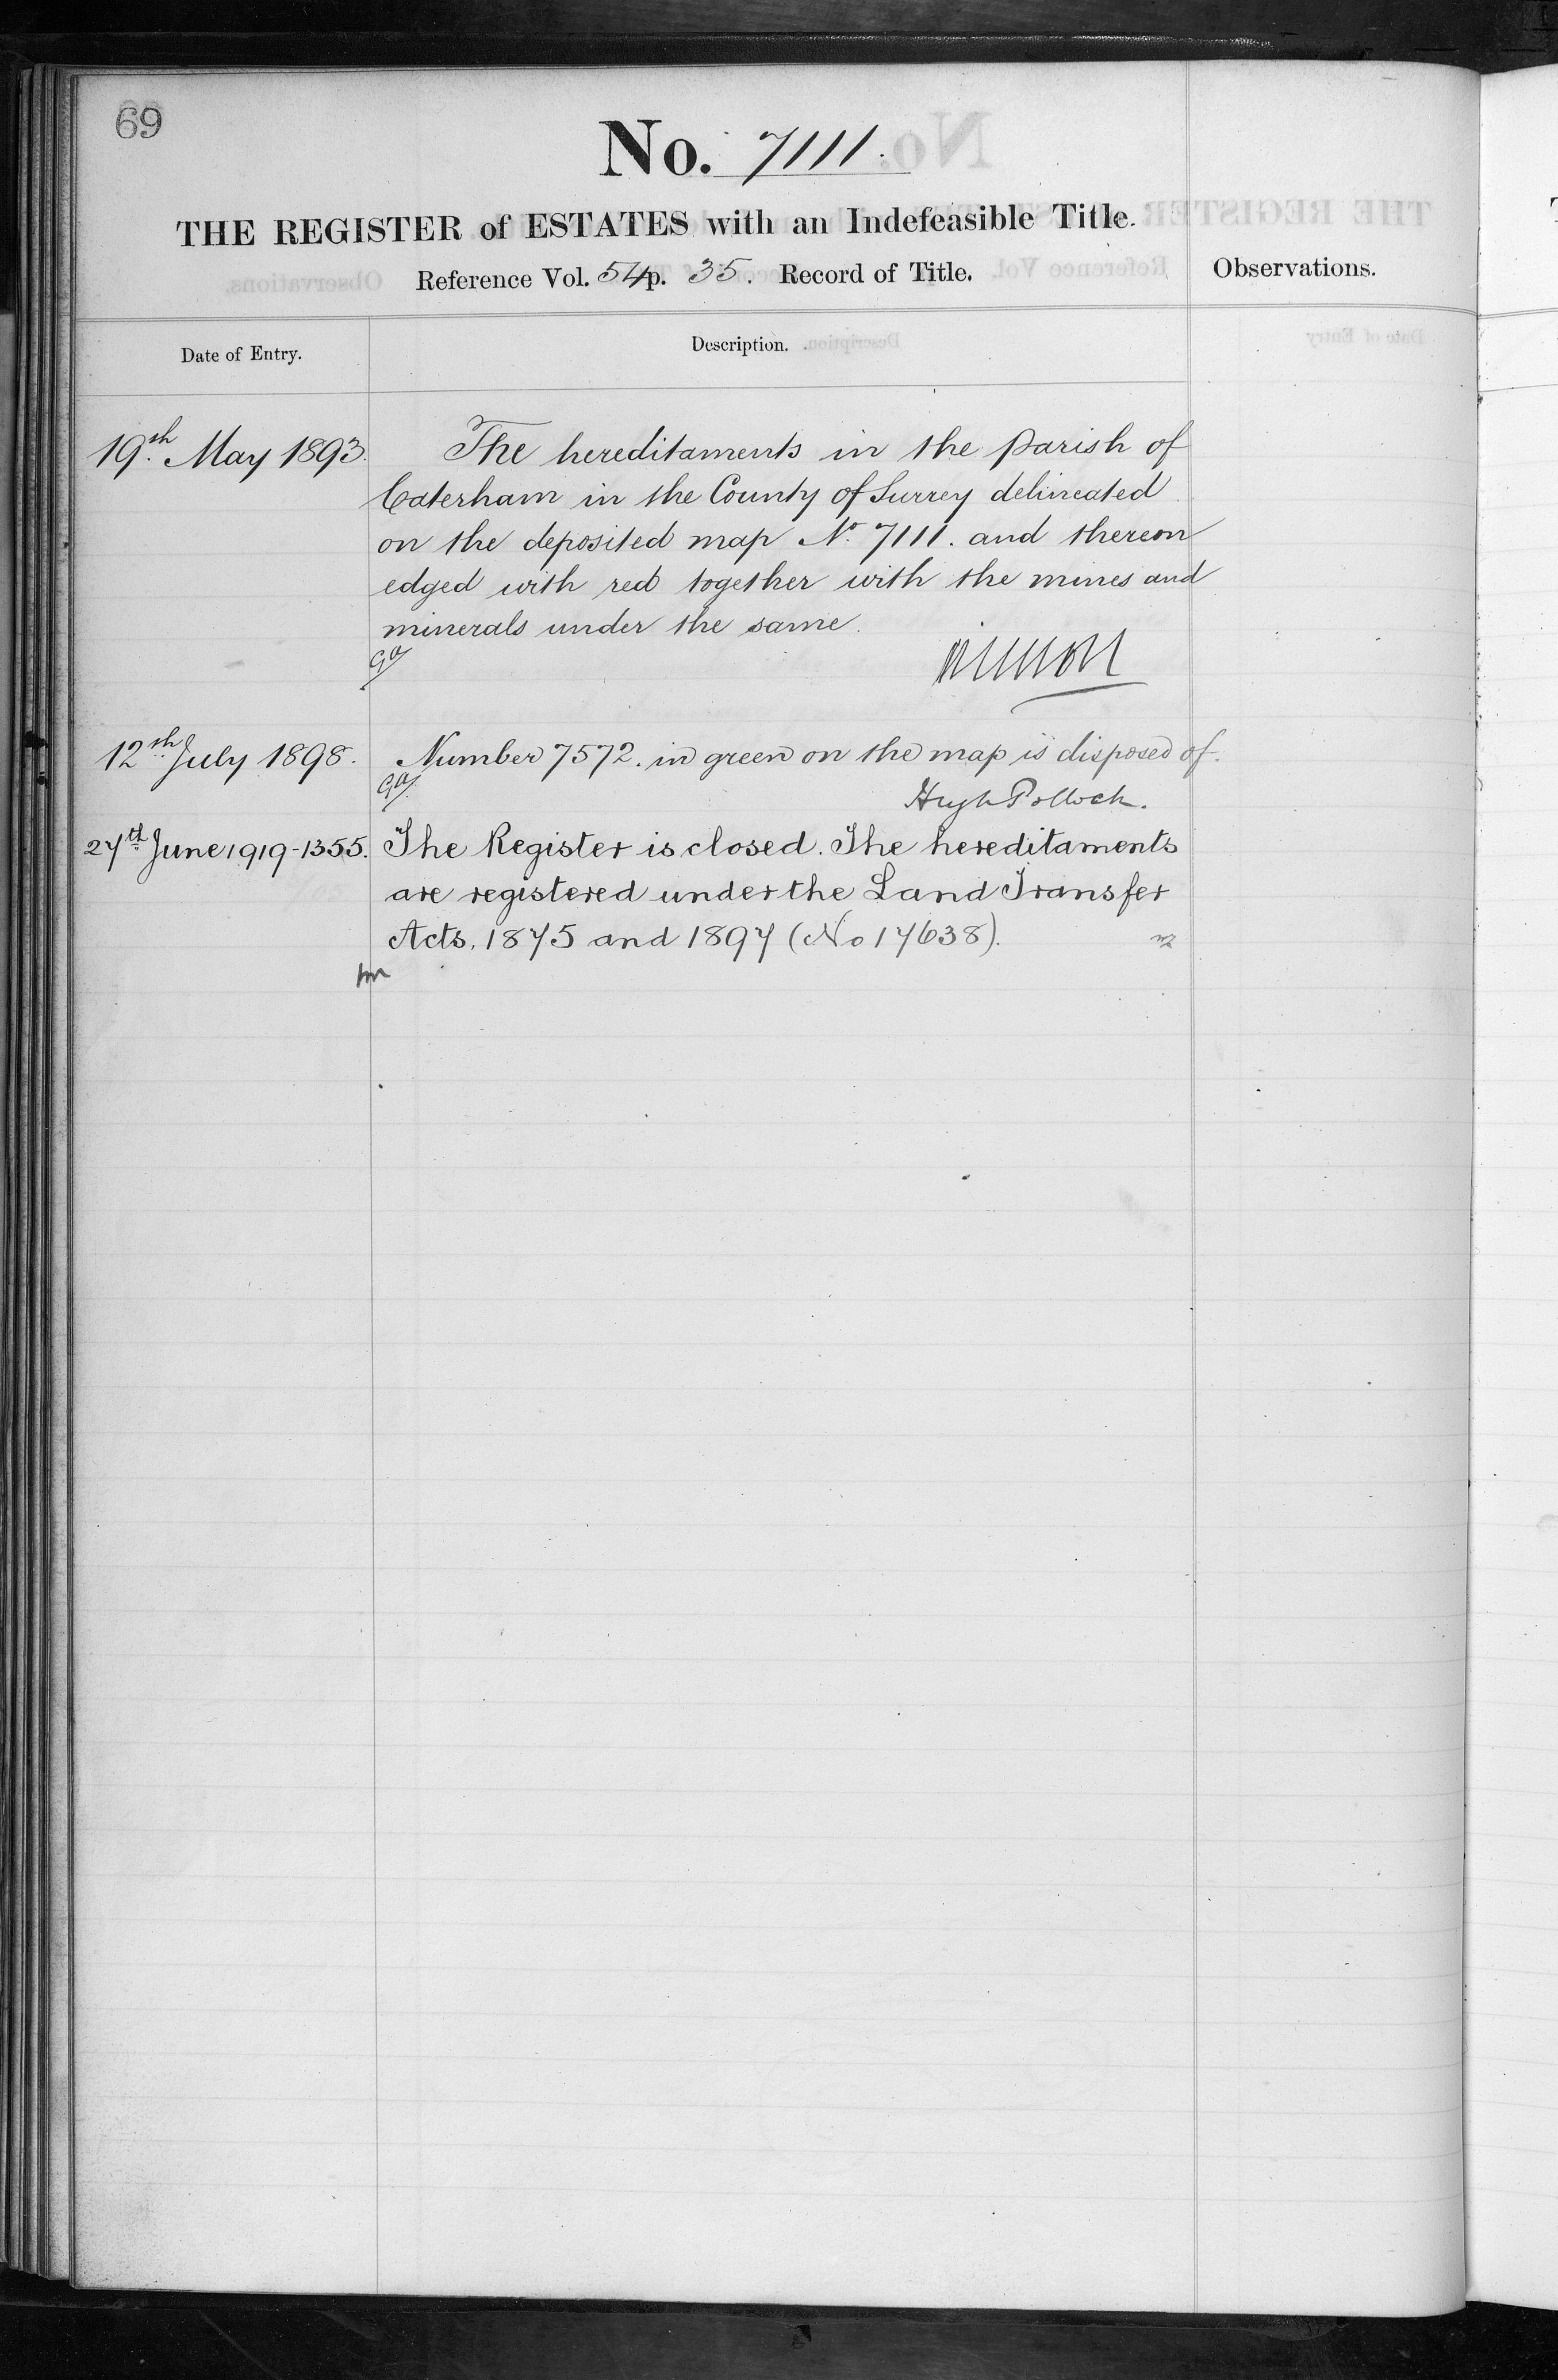 69
No. 7111.
THE REGISTER of ESTATES with an Indefeasible Title.
Reference Vol. 54 p. 35. Record of Title.
Observations.
Date of Entry.
Description.
19th. May 1893.
The hereditaments in the parish of
Caterham in the County of Surrey delineated
on the deposited map No. 7111. and thereon
edged with red together with the mines and
minerals under the same.
12th. July 1898.
Number 7572. in green on the map is disposed of.
Hugh Pollock.
27th. June 1919-1355.
The Register is closed. The hereditaments
are registered under the Land Transfer
Acts, 1875 and 1897 (No 17638).